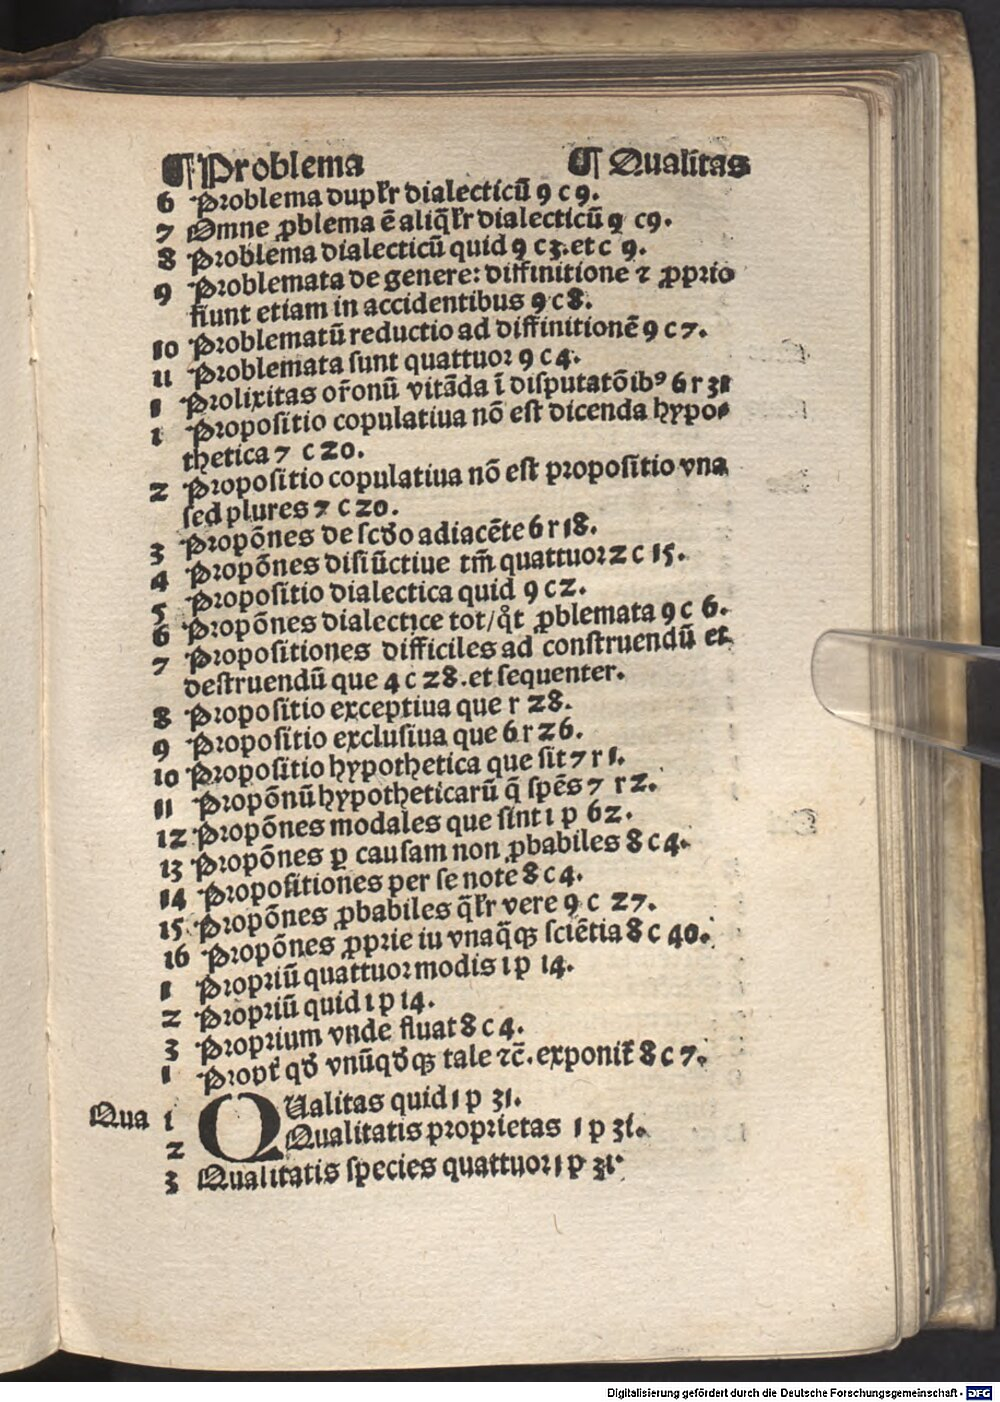 ¶ Problema ¶ Qualitas
6 Problema dupl̃r dialecticũ 9 c 9.
7 Omne ꝓblema ẽ aliq̃l̃r dialecticũ 9 c9.
8 Problema dialecticũ quid 9 c 3. et c 9.
9 Problemata de genere: diffinitione ⁊ ꝓprio
fiunt etiam in accidentibus 9 c 8.
10 Problematũ reductio ad diffinitionẽ 9 c 7.
11 Problemata sunt quattuor 9 c 4.
1 Prolixitas or̃onũ vitãda ĩ disputatõibꝰ 6 r 31
1 Propositio copulatiua nõ est dicenda hypo⸗
thetica 7 c 20.
2 Propositio copulatiua nõ est propositio vna
sed plures 7 c 20.
3 Propõnes de scďo adiacẽte 6 r 18.
4 Propõnes disiũctiue tm̃ quattuor 2 c 15.
5 Propositio dialectica quid 9 c 2.
6 Propõnes dialectice tot/q̊t ꝓblemata 9 c 6.
7 Propositiones difficiles ad construendũ et
destruendũ que 4 c 28. et sequenter.
8 Propositio exceptiua que r 28.
9 Propositio exclusiua que 6 r 26.
10 Propositio hypothetica que sit 7 r 1.
11 Propõnũ hypotheticarũ q̃ spẽs 7 r 2.
12 Propõnes modales que sint 1 p 62.
13 Propõnes ꝑ causam non ꝓbabiles 8 c 4.
14 Propositiones per se note 8 c 4.
15 Propõnes ꝓbabiles q̃l̃r vere 9 c 27.
16 Propõnes ꝓprie iu vnaq̃qꝫ sciẽtia 8 c 40.
1 Propriũ quattuor modis 1 p 14.
2 Propriũ quid 1 p 14.
3 Proprium vnde fluat 8 c 4.
1 Propt̃ qď vnũqďqꝫ tale ⁊c̃. exponit̃ 8 c 7.
Qua 1 QUalitas quid 1 p 31.
2 Qualitatis proprietas 1 p 31.
3 Qualitatis species quattuor 1 p 31.
Digitalisierung gefördert durch die Deutsche Forschungsgemeinschaft - DFG